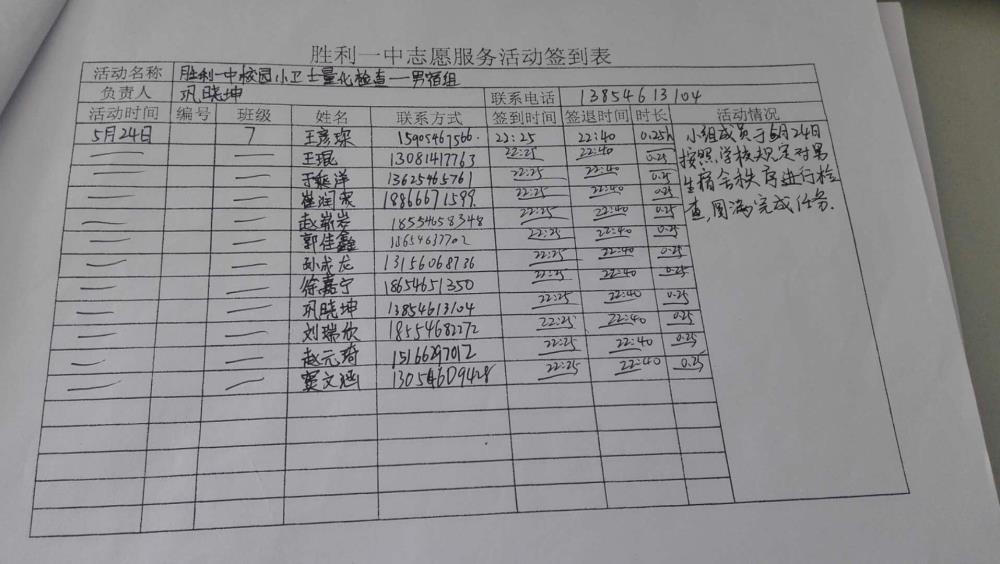 胜利一中志愿服务活动签到表
活动名称 胜利一中校园小卫士量化检查—男宿组
负责人 巩晓坤 联系电话 13854613104
活动时间 编号 班级 姓名 联系方式 签到时间 签退时间 时长 活动情况
5月24日 7 王彦琛 15905467566. 22:25 22:40 0.25h
— — 王琨 13081417763 22:25 22:40 0.25
— — 于延洋 13625465761 22:25 22:40 0.25
— — 崔润 18866671599. 22:25 22:40 0.25
— — 赵崭岩 18554658348 22:25 22:40 0.25
— — 郭佳鑫 18654637702 22:25 22:40 0.25
— — 孙成龙 13156068736 22:25 22:40 0.25
— — 徐嘉宁 18654651350 22:25 22:40 0.25
— — 巩晓坤 13854613104 22:25 22:40 0.25
— — 刘瑞欣 18554682272 22:25 22:40 0.25
— — 赵元琦 15166297012 22:25 22:40 0.25
— — 窦文涵 13054609428 22:25 22:40 0.25
小组成员于5月24日
按照学校规定对男
生宿舍秩序进行检
查,圆满完成任务.